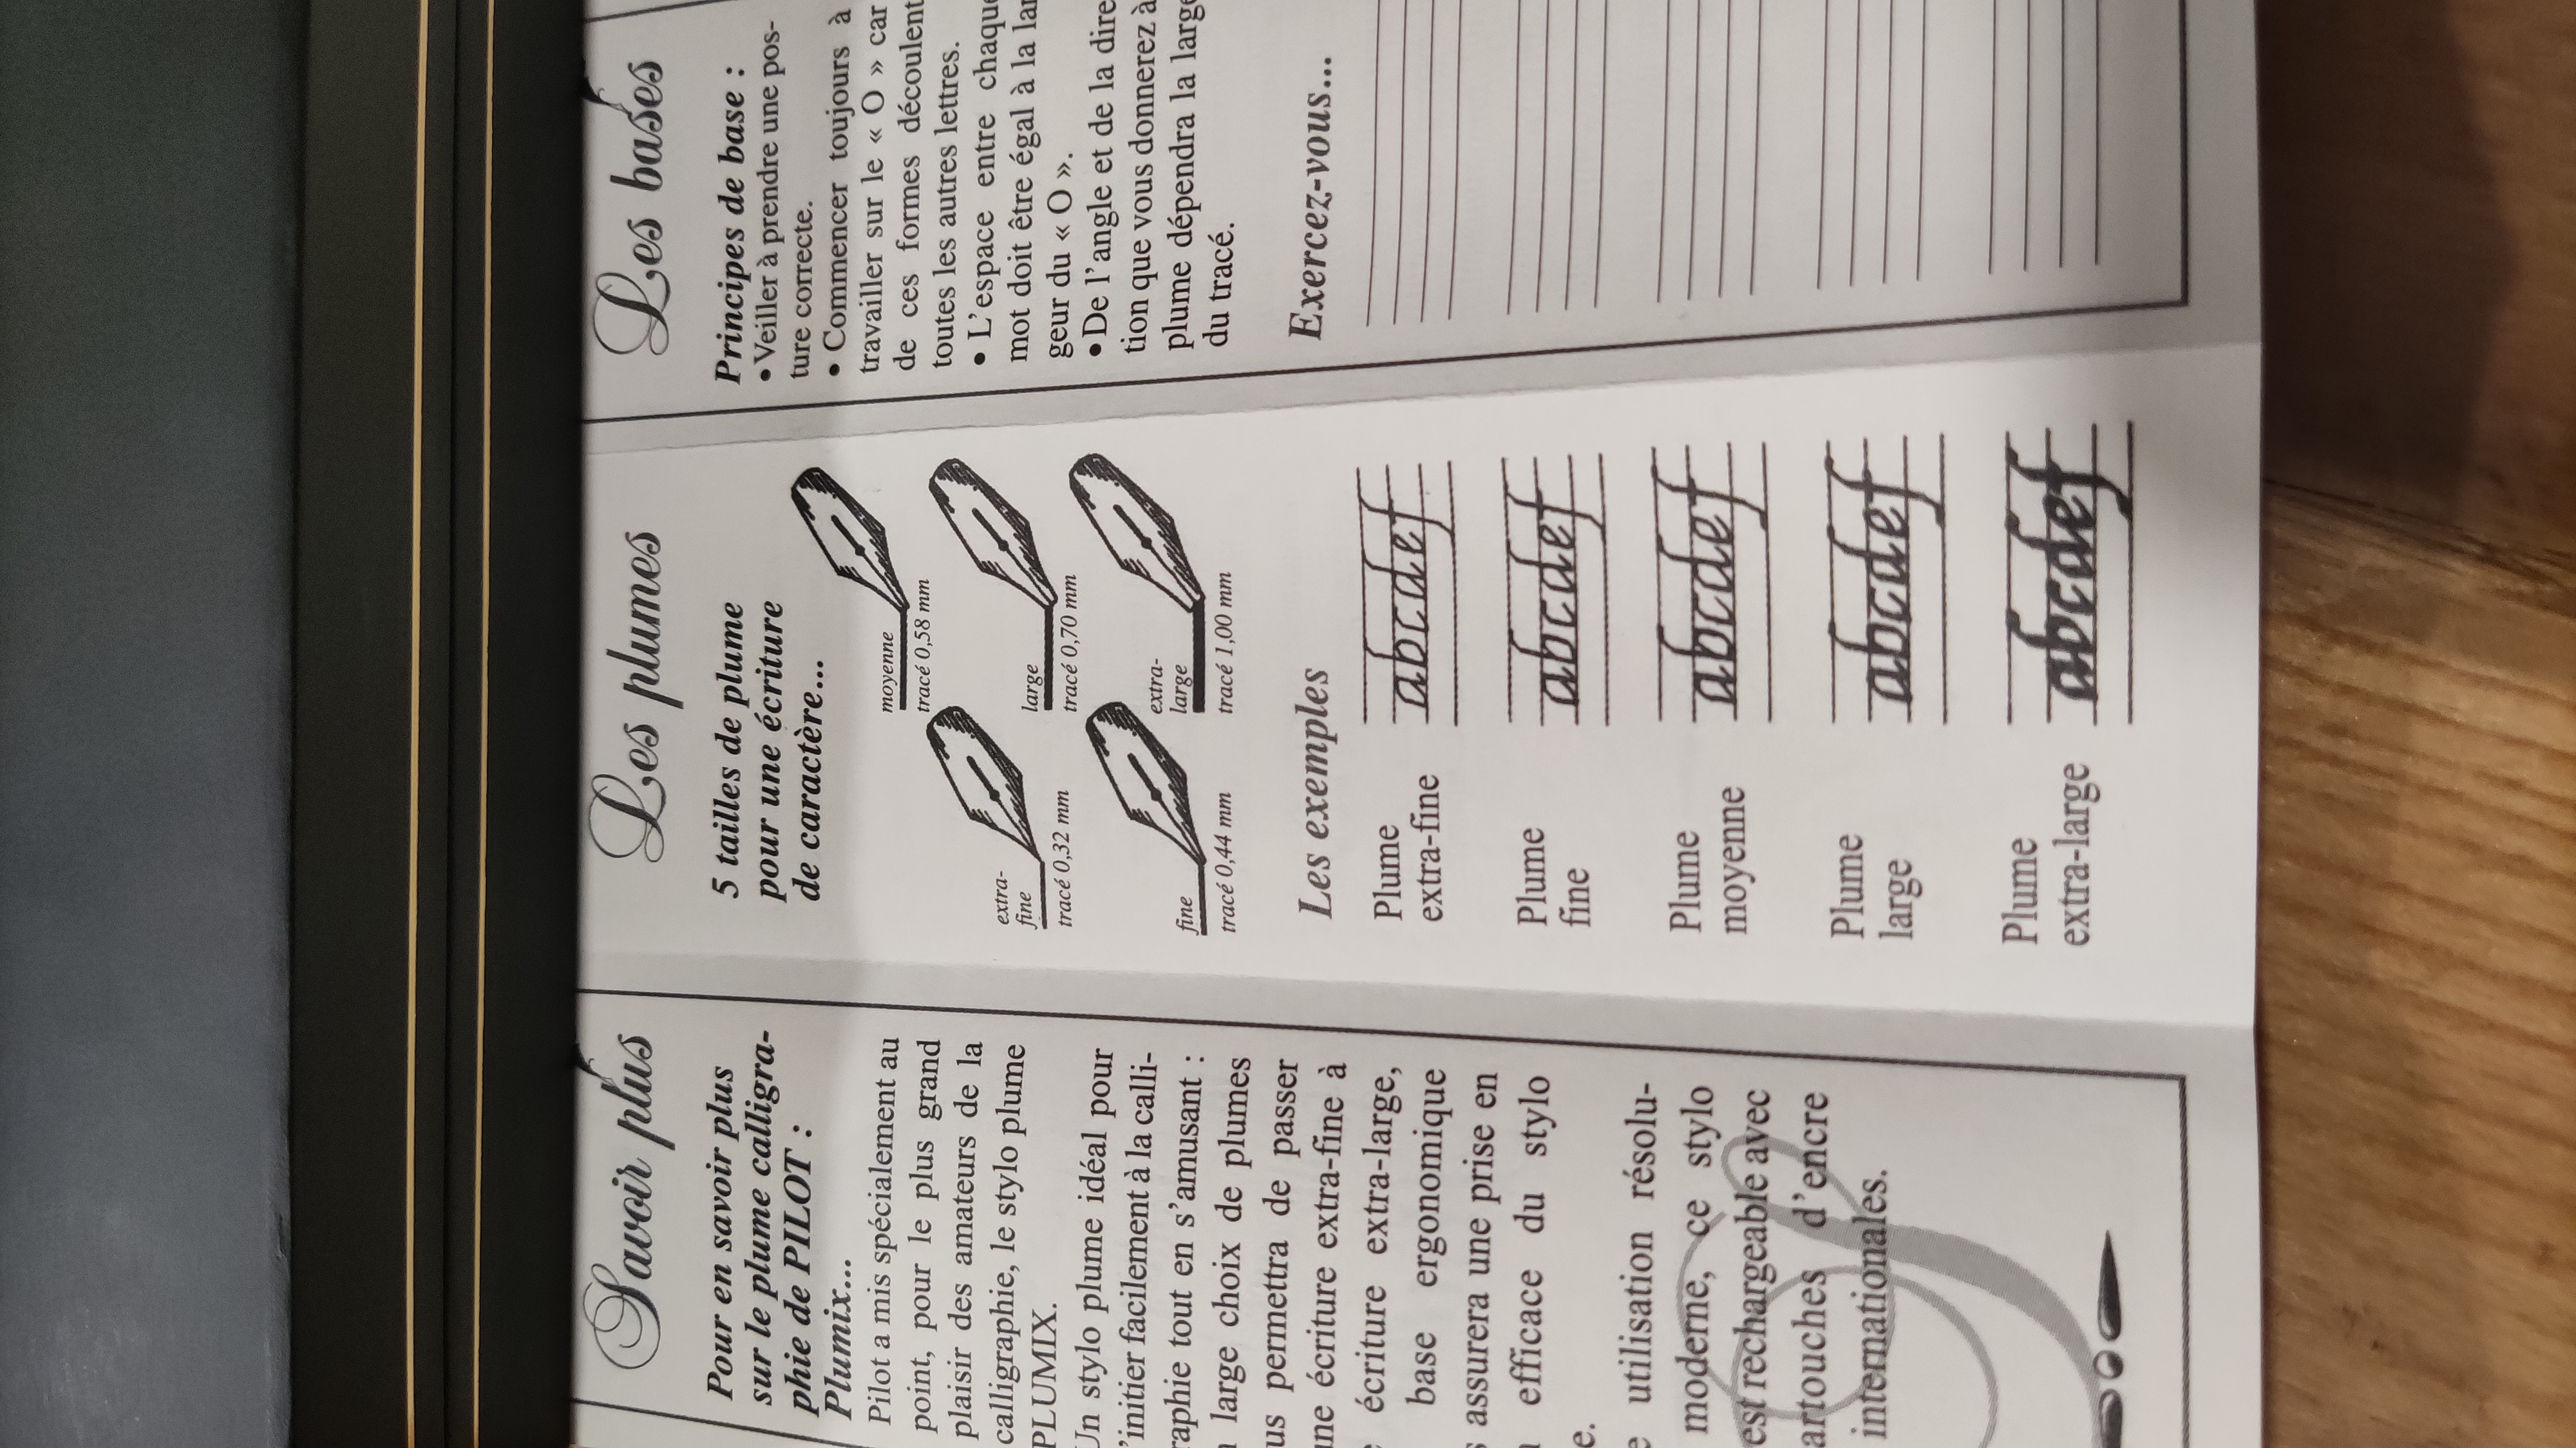 Savoir plus
Pour en savoir plus
sur le plume calligra-
phie de PILOT :
Plumix...
Pilot a mis spécialement au
point, pour le plus grand
plaisir des amateurs de la
calligraphie, le stylo plume
PLUMIX.
Un stylo plume idéal pour
'initier facilement à la calli-
raphie tout en s'amusant :
large choix de plumes
us permettra de passer
une écriture extra-fine à
écriture extra-large,
base ergonomique
assurera une prise en
efficace du stylo
e.
utilisation résolu-
moderne, ce stylo
est rechargeable avec
artouches d'encre
internationales.
Les plumes
5 tailles de plume
pour une écriture
de caractère...
moyenne
tracé 0,58 mm
extra-
fine
tracé 0,32 mm
large
tracé 0,70 mm
fine
tracé 0,44 mm
extra-
large
tracé 1,00 mm
Les exemples
Plume
extra-fine
abcdef
Plume
fine
abcdef
Plume
moyenne
abcdef
Plume
large
abcdef
Plume
extra-large
abcdef
Les bases
Principes de base :
• Veiller à prendre une pos-
ture correcte.
• Commencer toujours à
travailler sur le « O » car
de ces formes découlent
toutes les autres lettres.
• L'espace entre chaque
mot doit être égal à la lar
geur du « O ».
• De l'angle et de la dire
tion que vous donnerez à
plume dépendra la large
du tracé.
Exercez-vous...